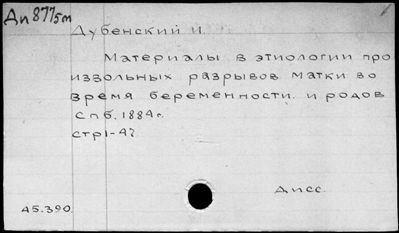 Дп 8775m
Дубенский И.
Материалы в этиологии про
извольных разрывов матки во
время беременности и родов
Спб. 1884 г.
стр 1-47.
Дисс.
45.390.